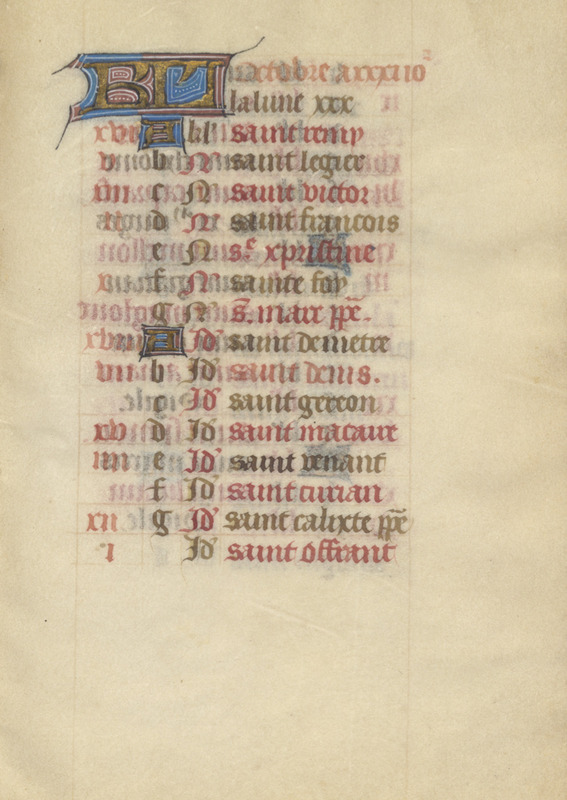 KL Octobre a xxxi io
la lune xxx
xvi A kl saint remy
v b N saint legier
xiii c N saint victor
ii d N saint francois
e N s.e xpristine
x f N sainte foy
g N s. marc ppe.
xviii A Id saint demetre
vii b Id saint denis.
c Id saint gereon
xv d Id saint macaire
iiii e Id saint venant
f Id saint curian
xii g Id saint calixte ppe
i Id saint offrant